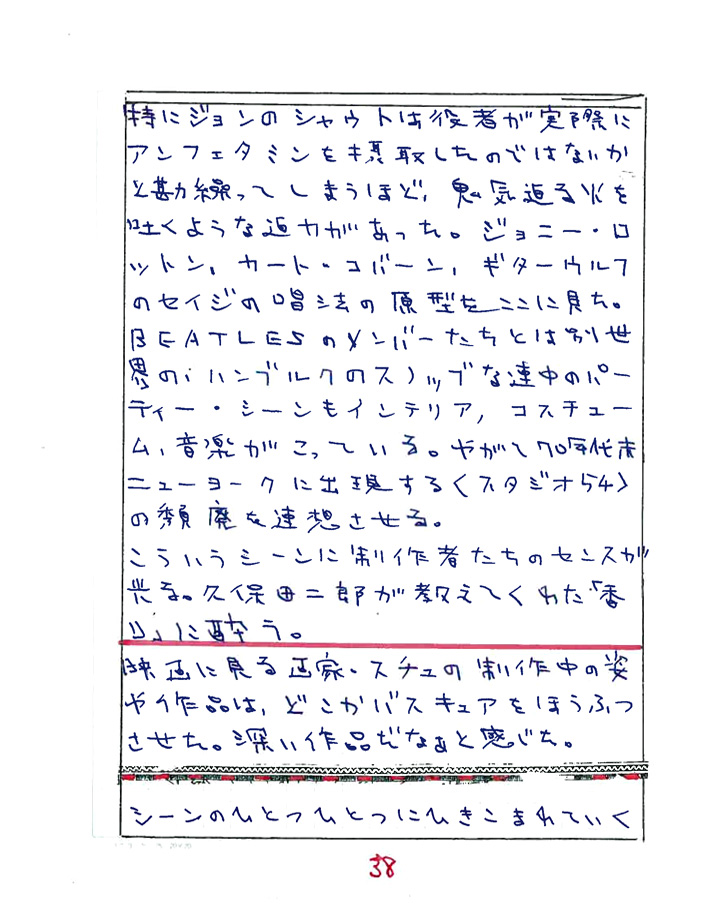 特にジョンのシャウトは役者が実際に
アンフェタミンを摂取したのではないか
と勘繰ってしまうほど、鬼気迫る火を
吐くような迫力があった。ジョニー・ロ
ットン、カート・コバーン、ギターウルフ
のセイジの唱法の原型をここに見た。
BEATLESのメンバーたちとは別世
界の、ハンブルクのスノッブな連中のパー
ティー・シーンもインテリア、コスチュー
ム、音楽がこっている。やがて70年代末
ニューヨークに出現する〈スタジオ54〉
の頽廃を連想させる。
こういうシーンに制作者たちのセンスが
光る。久保田二郎が教えてくれた「香
り」に酔う。
映画に見る画家・スチュの制作中の姿
や作品は、どこかバスキュアをほうふつ
させた。深い作品だなぁと感じた。
シーンのひとつひとつにひきこまれていく
38